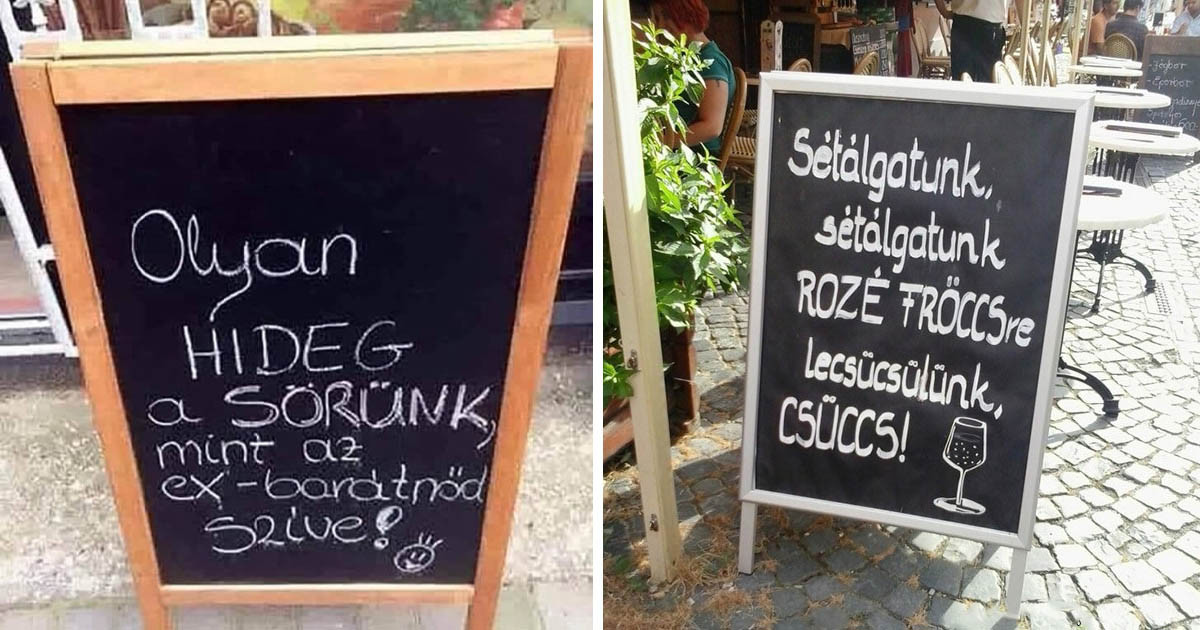 Olyan
HIDEG
a SÖRÜNK,
mint az
ex-barátnőd
szíve!
Sétálgatunk,
sétálgatunk
ROZÉ FRÖCCSre
lecsücsülünk,
CSÜCCS!